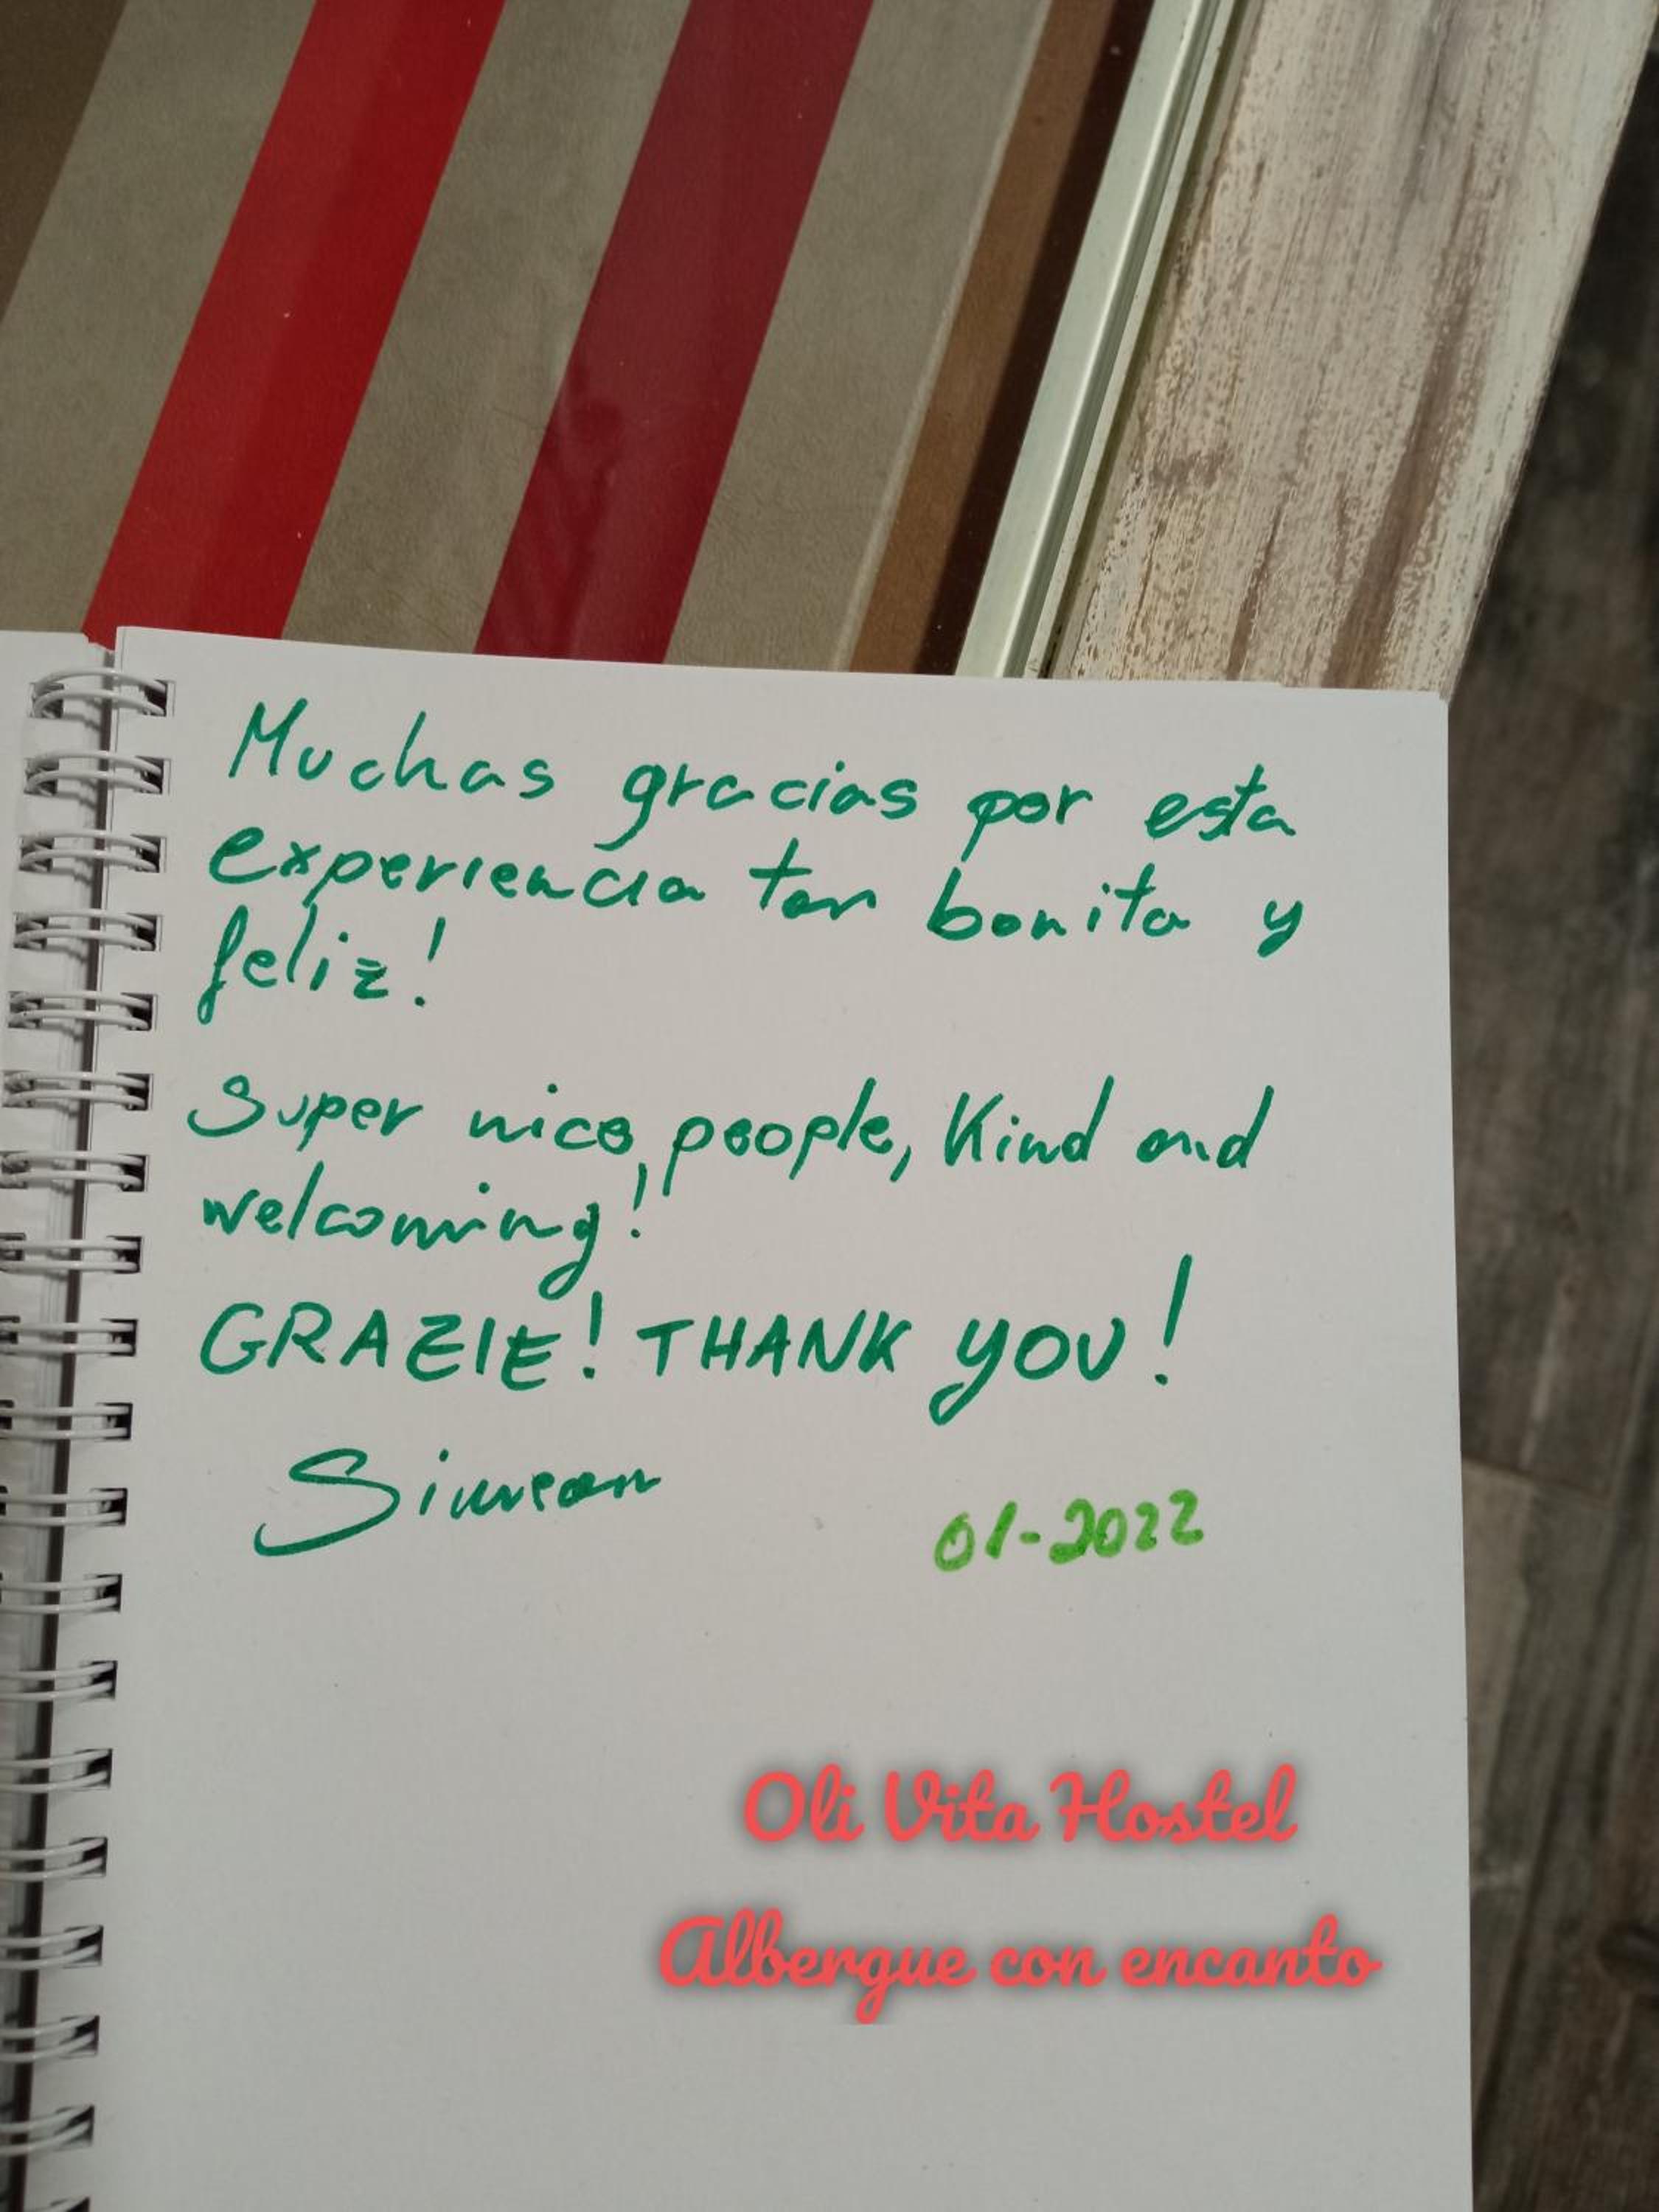 Muchas gracias por esta
experiencia tan bonita y
feliz!
Super nice people, Kind and
welcoming!
GRAZIE! THANK YOU!
Simeon
01-2022
Oli Vita Hostel
Albergue con encanto